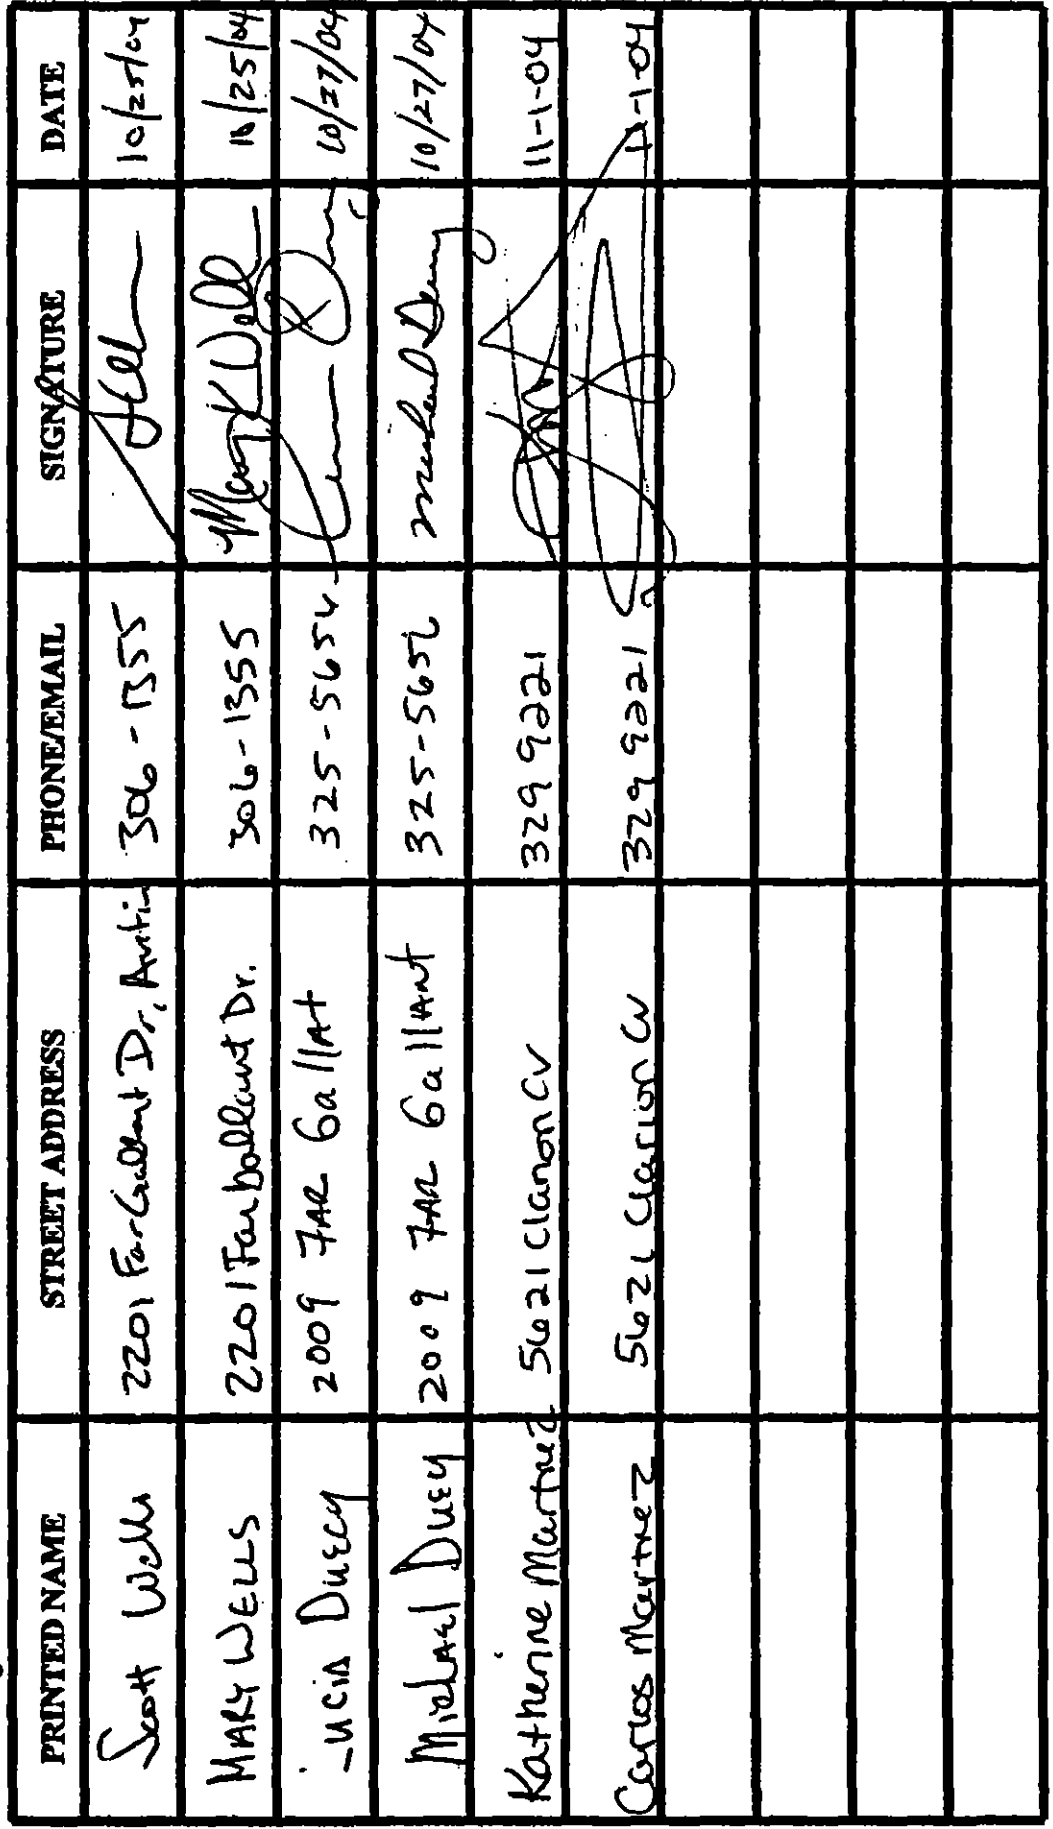 PRINTED NAME STREET ADDRESS PHONE/EMAIL SIGNATURE DATE
Scott Wells 2201 Far Gallant Dr, Austin 306-1355 10/25/04
MARY WELLS 2201 Far Gallant Dr. 306-1355 Mary K Wells 10/25/04
2009 FAR Gallat 325-5656 10/27/04
Michael 2009 FAR Gallant 325-5656 Michael 10/27/04
Katherine Martinez 5621 Clarion Cv 329 9221 11-1-04
Carlos Martinez 5621 Clarion Cv 329 9221 11-1-04